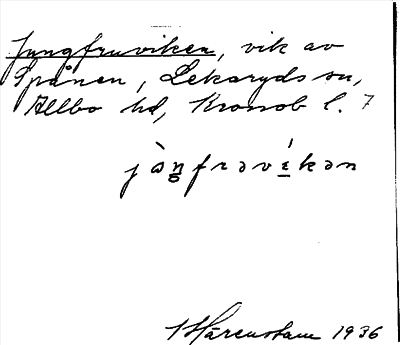 Jungfruviken, vik av
Spånen, Lekaryds sn,
Allbo hd, Kronob l. 7
jòŋfrəvíkən
Härenstam 1936